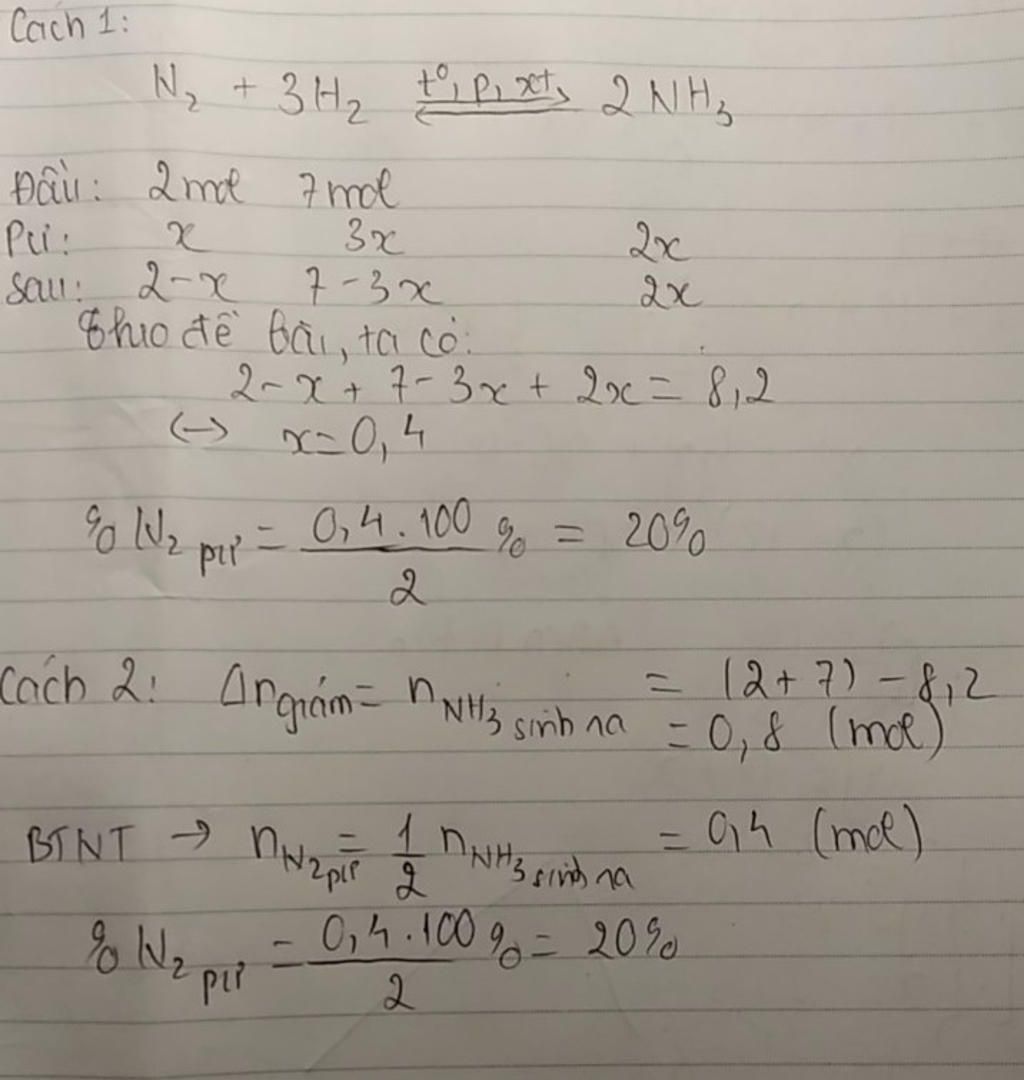 Cách 1:
N₂ + 3H₂ ⇌ (t°, p, xt) 2NH₃
Đầu: 2mol 7mol
Pư: x 3x 2x
Sau: 2-x 7-3x 2x
Theo đề bài, ta có:
2-x + 7-3x + 2x = 8,2
↔ x=0,4
% N₂ pư = 0,4.100/2 % = 20%
Cách 2: Δn giảm = n NH₃ sinh ra = (2+7) - 8,2
= 0,8 (mol)
BTNT → n N₂ pư = 1/2 n NH₃ sinh ra = 0,4 (mol)
% N₂ pư = 0,4.100/2 % = 20%